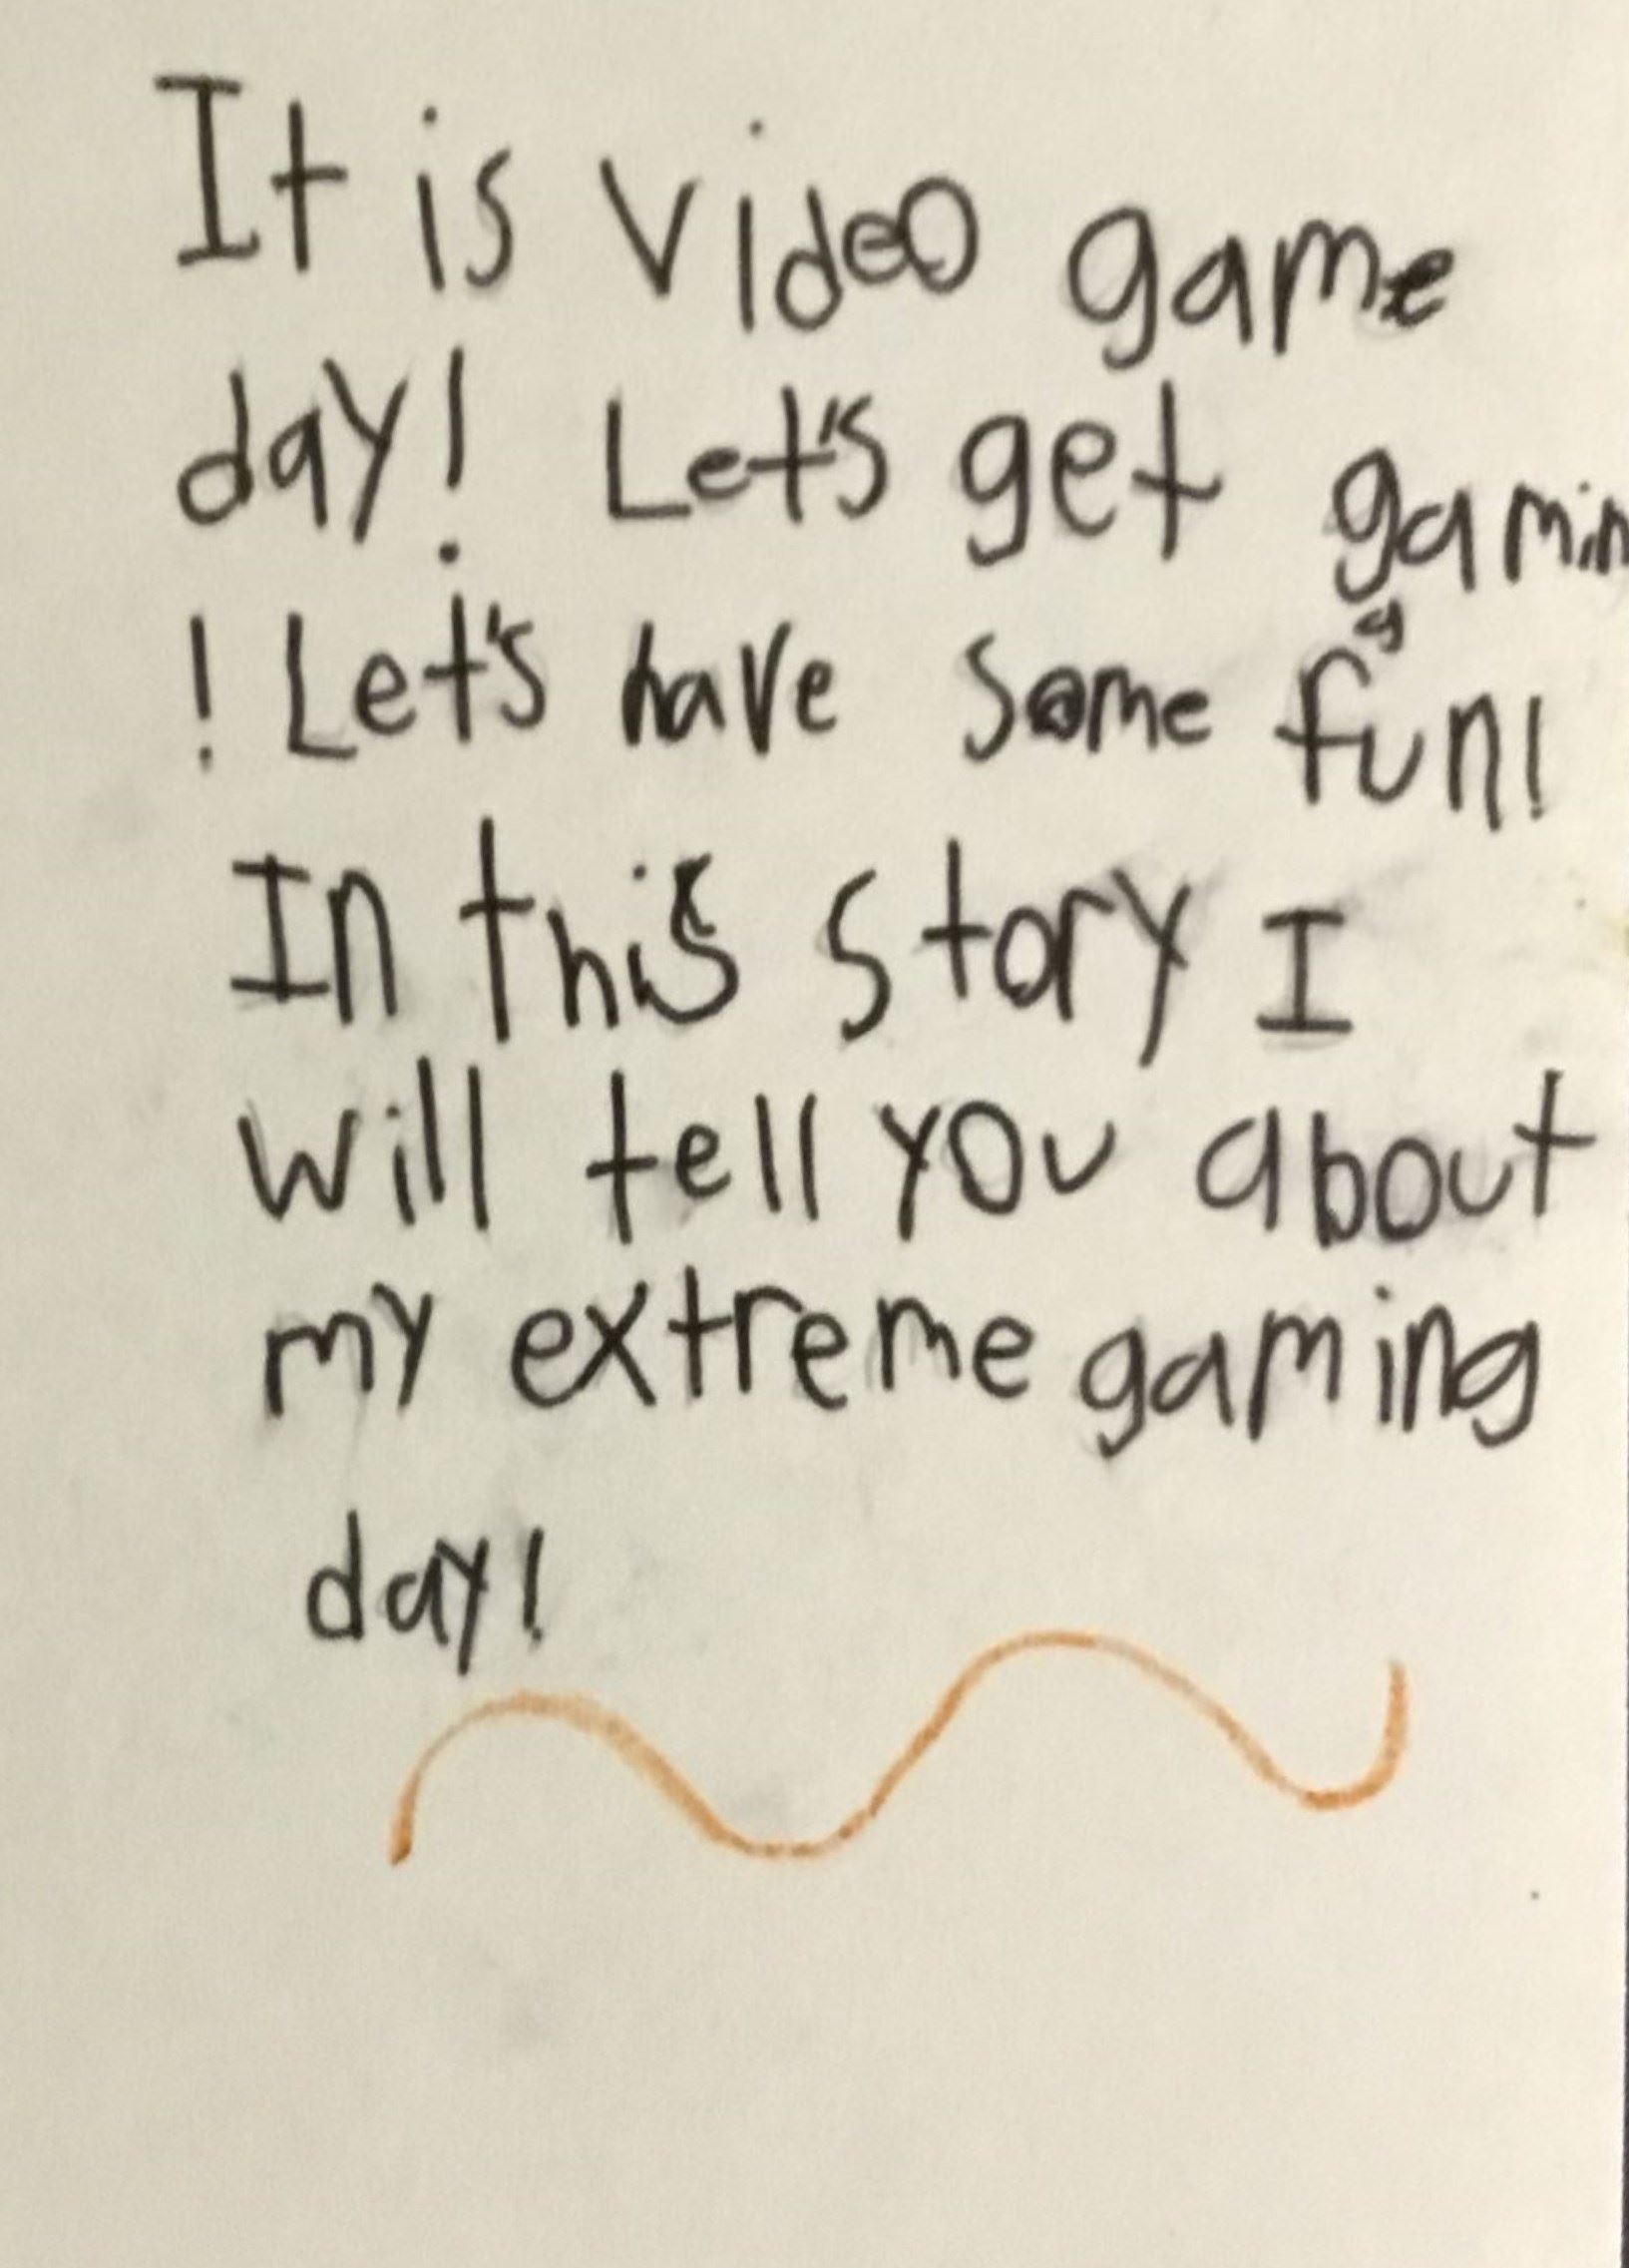 It is video game
day! Let's get gamin
g
! Let's have some fun!
In this story I
will tell you about
my extreme gaming
day!